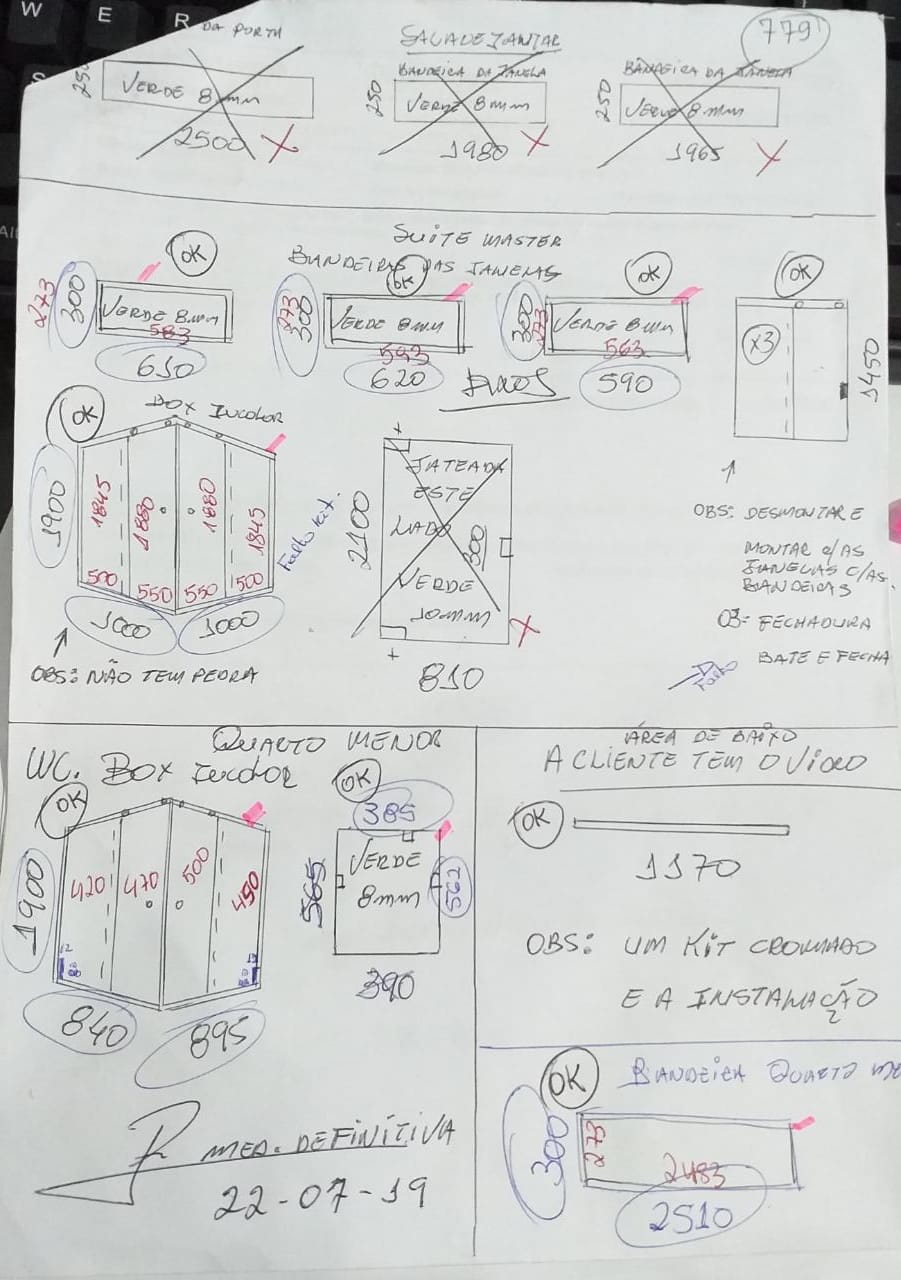 W E R
DA PORTA
SALA DE JANTAR
779
BANDEIRA DA JANELA
BANDEIRA DA JANELA
250
VERDE 8mm
250
VERDE 8mm
250
VERDE 8mm
2500 X
1980 X
1965 X
SUITE MASTER
BANDEIRAS DAS JANELAS
OK
OK
OK
OK
273
300
VERDE 8mm
583
610
273
300
VERDE 8mm
593
620
300
273
VERDE 8mm
563
590
x3
1450
OK
BOX INCOLOR
1900
1845
1880
1880
1845
500
550
550
500
1000
1000
OBS: NÃO TEM PEDRA
2100
JATEADA
ESTE
LADO
300
VERDE
10mm
X
810
OBS: DESMONTAR E
MONTAR c/AS
JANELAS C/AS
BANDEIRAS
FECHADURA
BATE E FECHA
QUARTO MENOR
WC. BOX INCOLOR
OK
1900
420
470
500
450
840
895
OK
385
565
VERDE
8mm
562
390
MED. DEFINITIVA
22-07-19
ÁREA DE BAIXO
A CLIENTE TEM O VIDRO
OK
1170
OBS: UM KIT CROMADO
E A INSTALAÇÃO
OK
BANDEIRA QUARTO ME
300
273
2483
2510